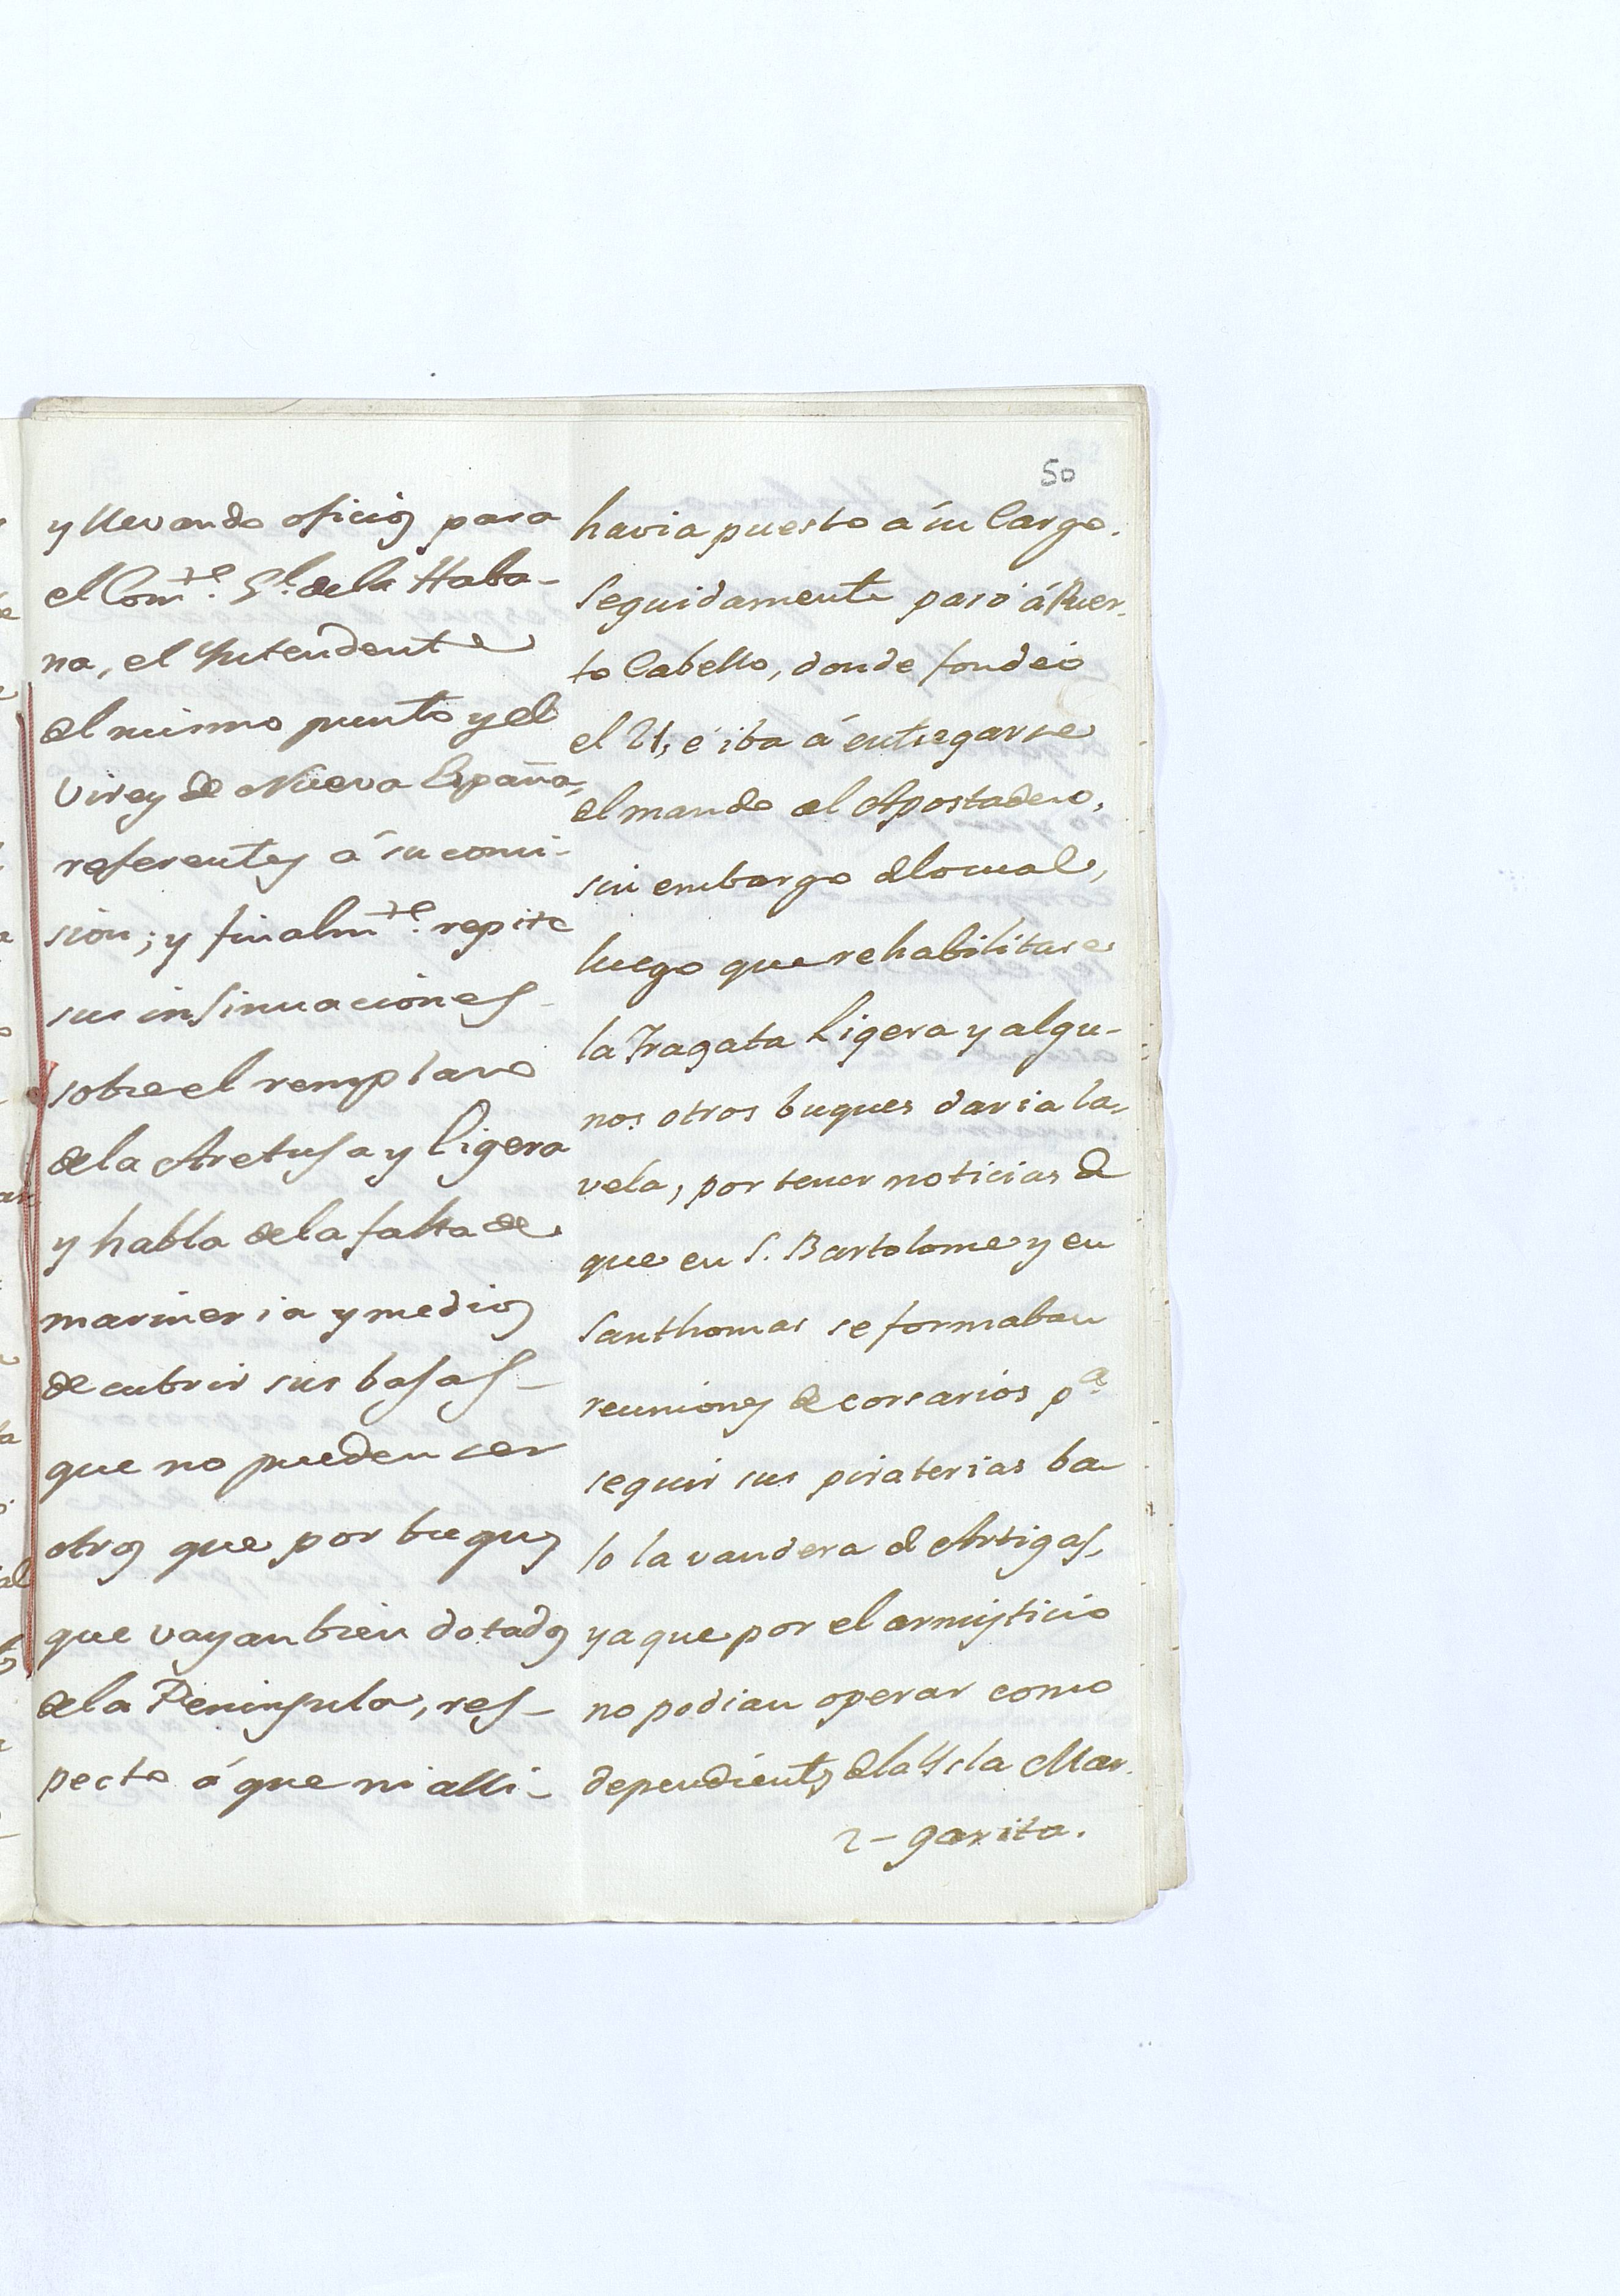 50
y llevando oficios para
el Com.te G.l dela Haba-
na, el Yntendente
del mismo punto y el
Virey de Nueva España,
referentes á su comi-
sion; y finalm.te repite
sus insinuaciones
sobre el remplazo
dela Aretusa y Ligera
y habla dela falta de
marineria y medios
de cubrir sus bajas
que no pueden ser
otros que por buques
que vayan bien dotados
dela Peninsula, res-
pecto á que ni alli-
havia puesto á su Cargo.
Seguidamente pasó á Puer-
to Cabello, donde fondeó
el 21, é iba á entregarse
del mando del Apostadero,
sin embargo delocual,
luego que rehabilitase
la Fragata Ligera y algu-
nos otros buques daria la
vela, por tener noticias de
que en S. Bartolome y en
Santhomas se formaban
reuniones de corsarios p.a
seguir sus piraterias ba
Jo la vandera de Artigas,
ya que por el armisticio
no podian operar como
dependientes dela Ysla Mar-
2- garita.